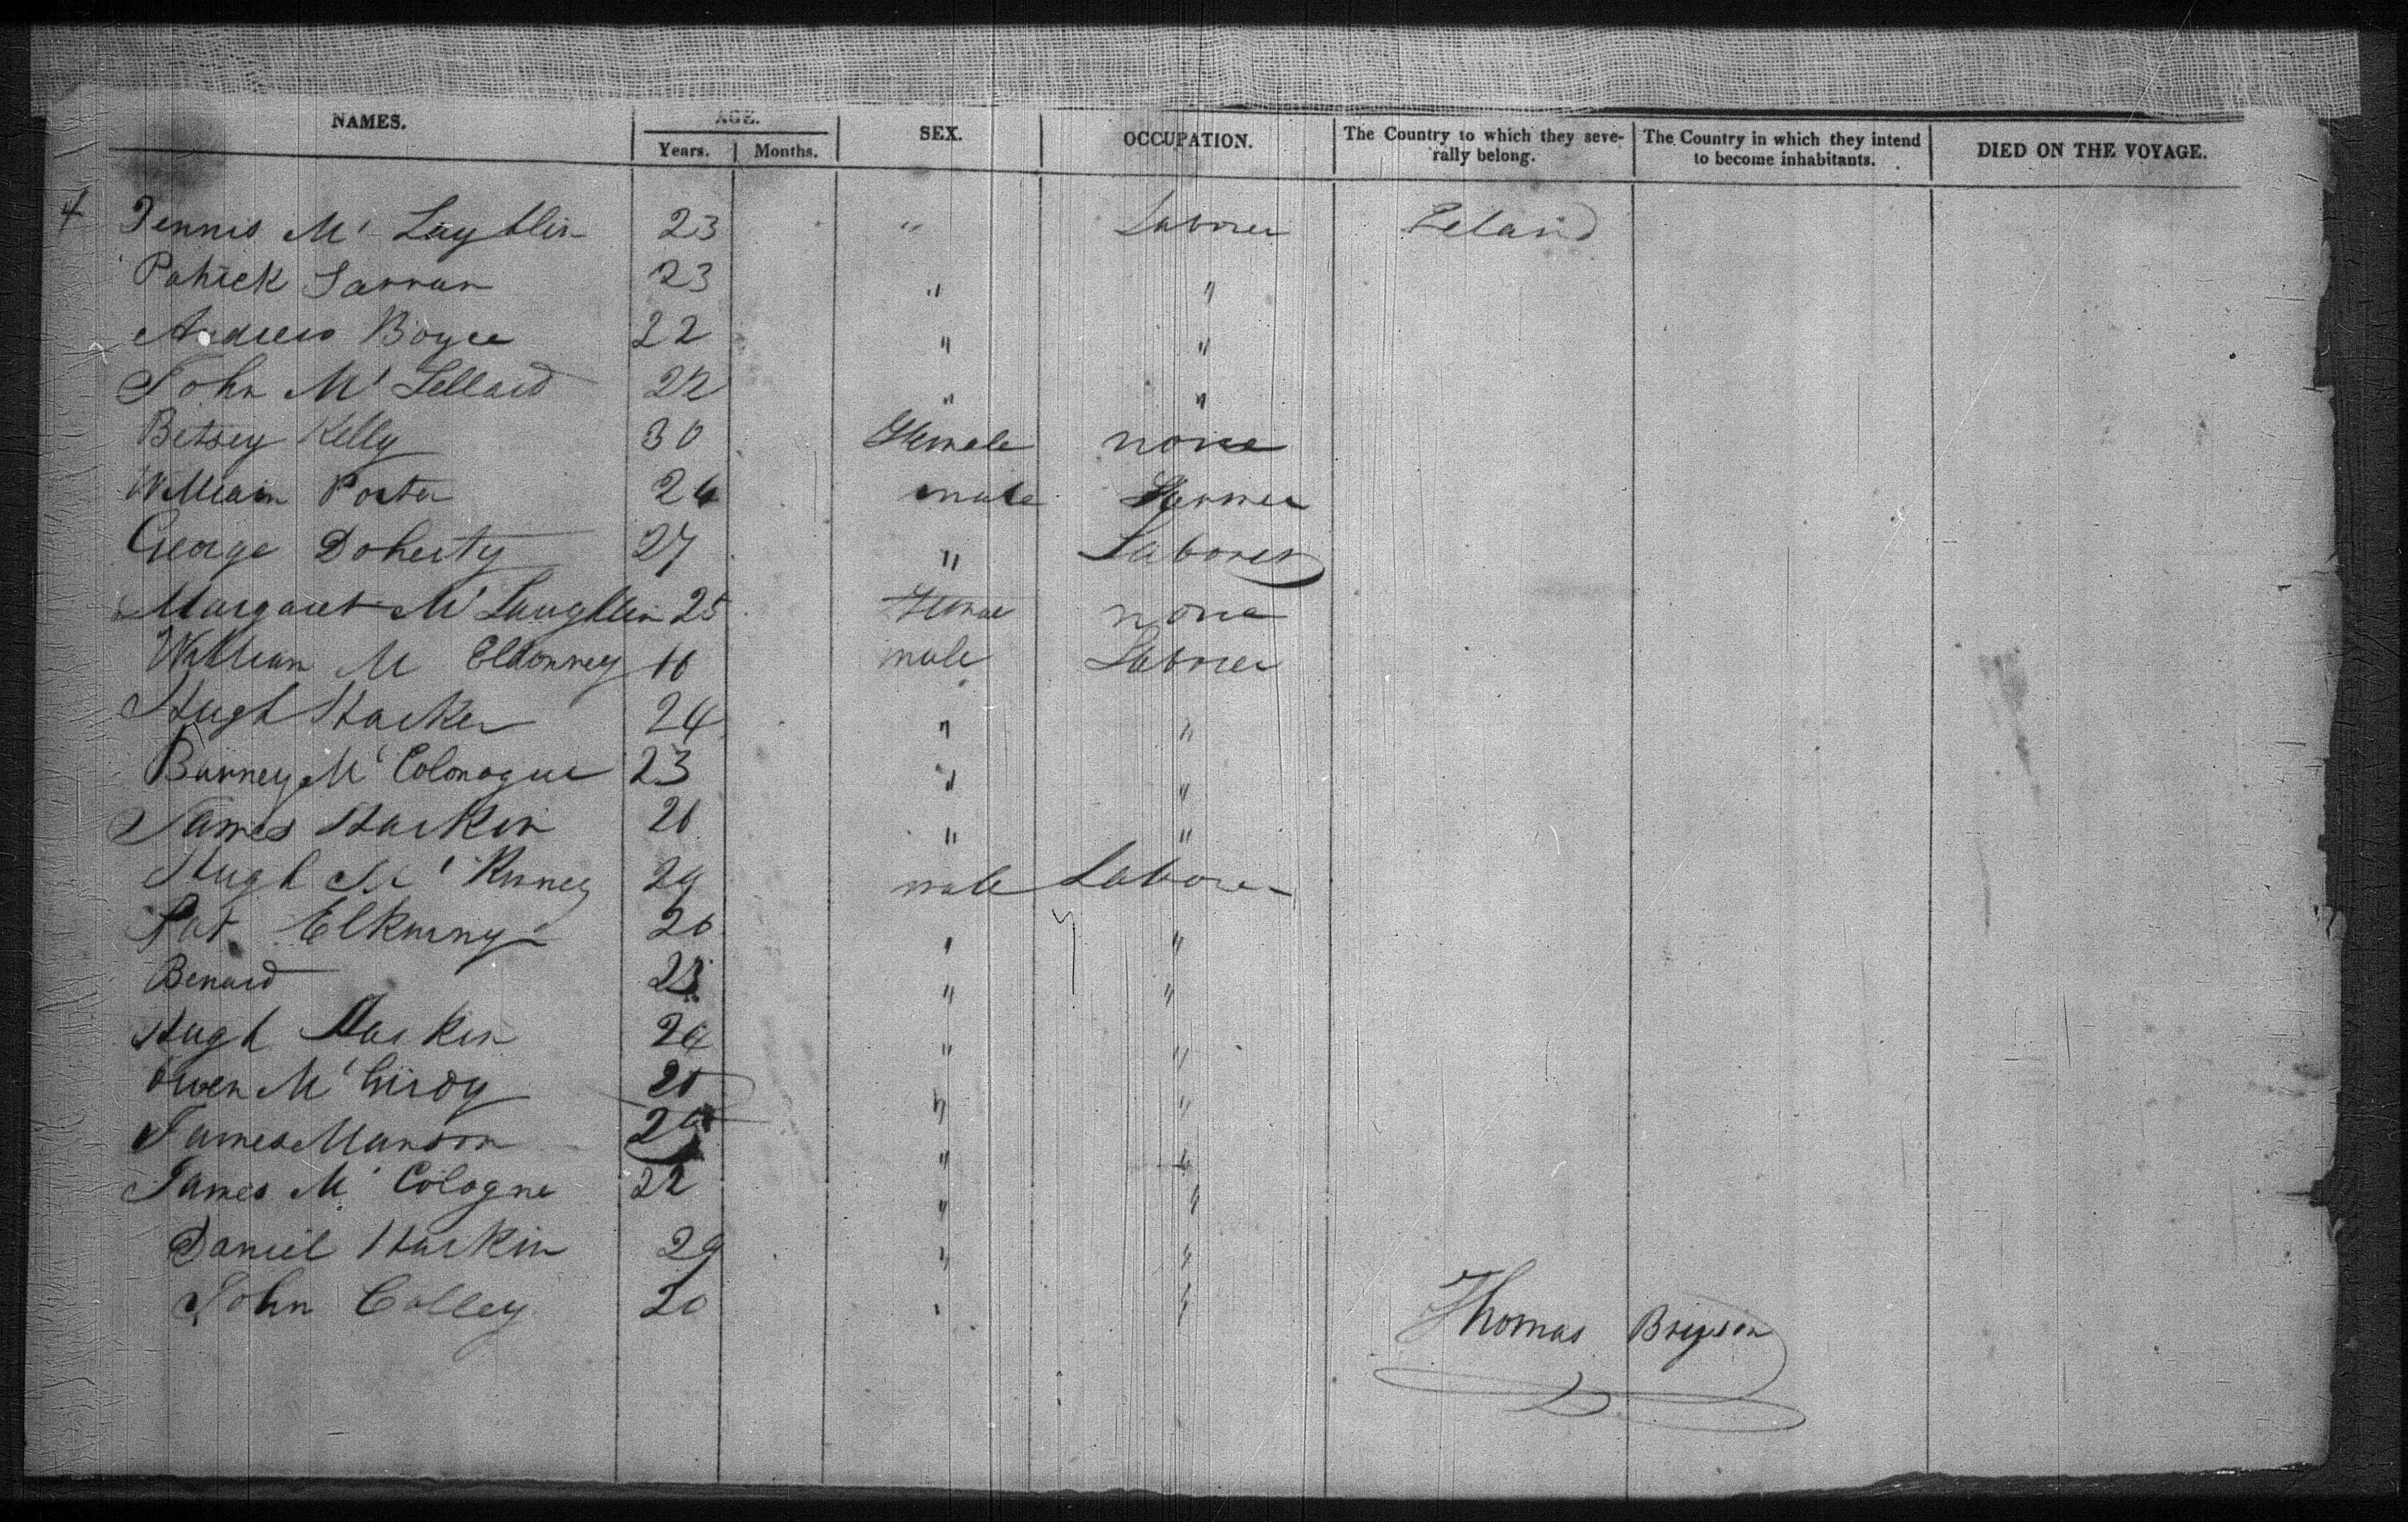 NAMES. AGE. SEX. OCCUPATION. The Country to which they seve- The Country in which they intend DIED ON THE VOYAGE.
Years. Months. rally belong. to become inhabitants.
4 Dennis M' Laghlin 23 " Laborer Ireland
Patrick 23 " "
Andrew Boyce 22 " "
John M' 22 " "
Betsey Kelly 30 Female none
William Porter 24 male Farmer
George Doherty 27 " Laborer
Margaret M' Laughlin 25 Female none
William M 16 male Laborer
Hugh Harken 24 " "
Barney M' Colonogue 23 " "
James Harkin 20 " "
Hugh Mc' Kinney 29 male Laborer
Pat 20 " "
Benard 23 " "
Hugh Harkin 24 " "
Owen M' 20 " "
James Manson " "
James M' Cologne 22 " "
Daniel Harkin 29 " "
John Colley 20 " "
Thomas Bryson